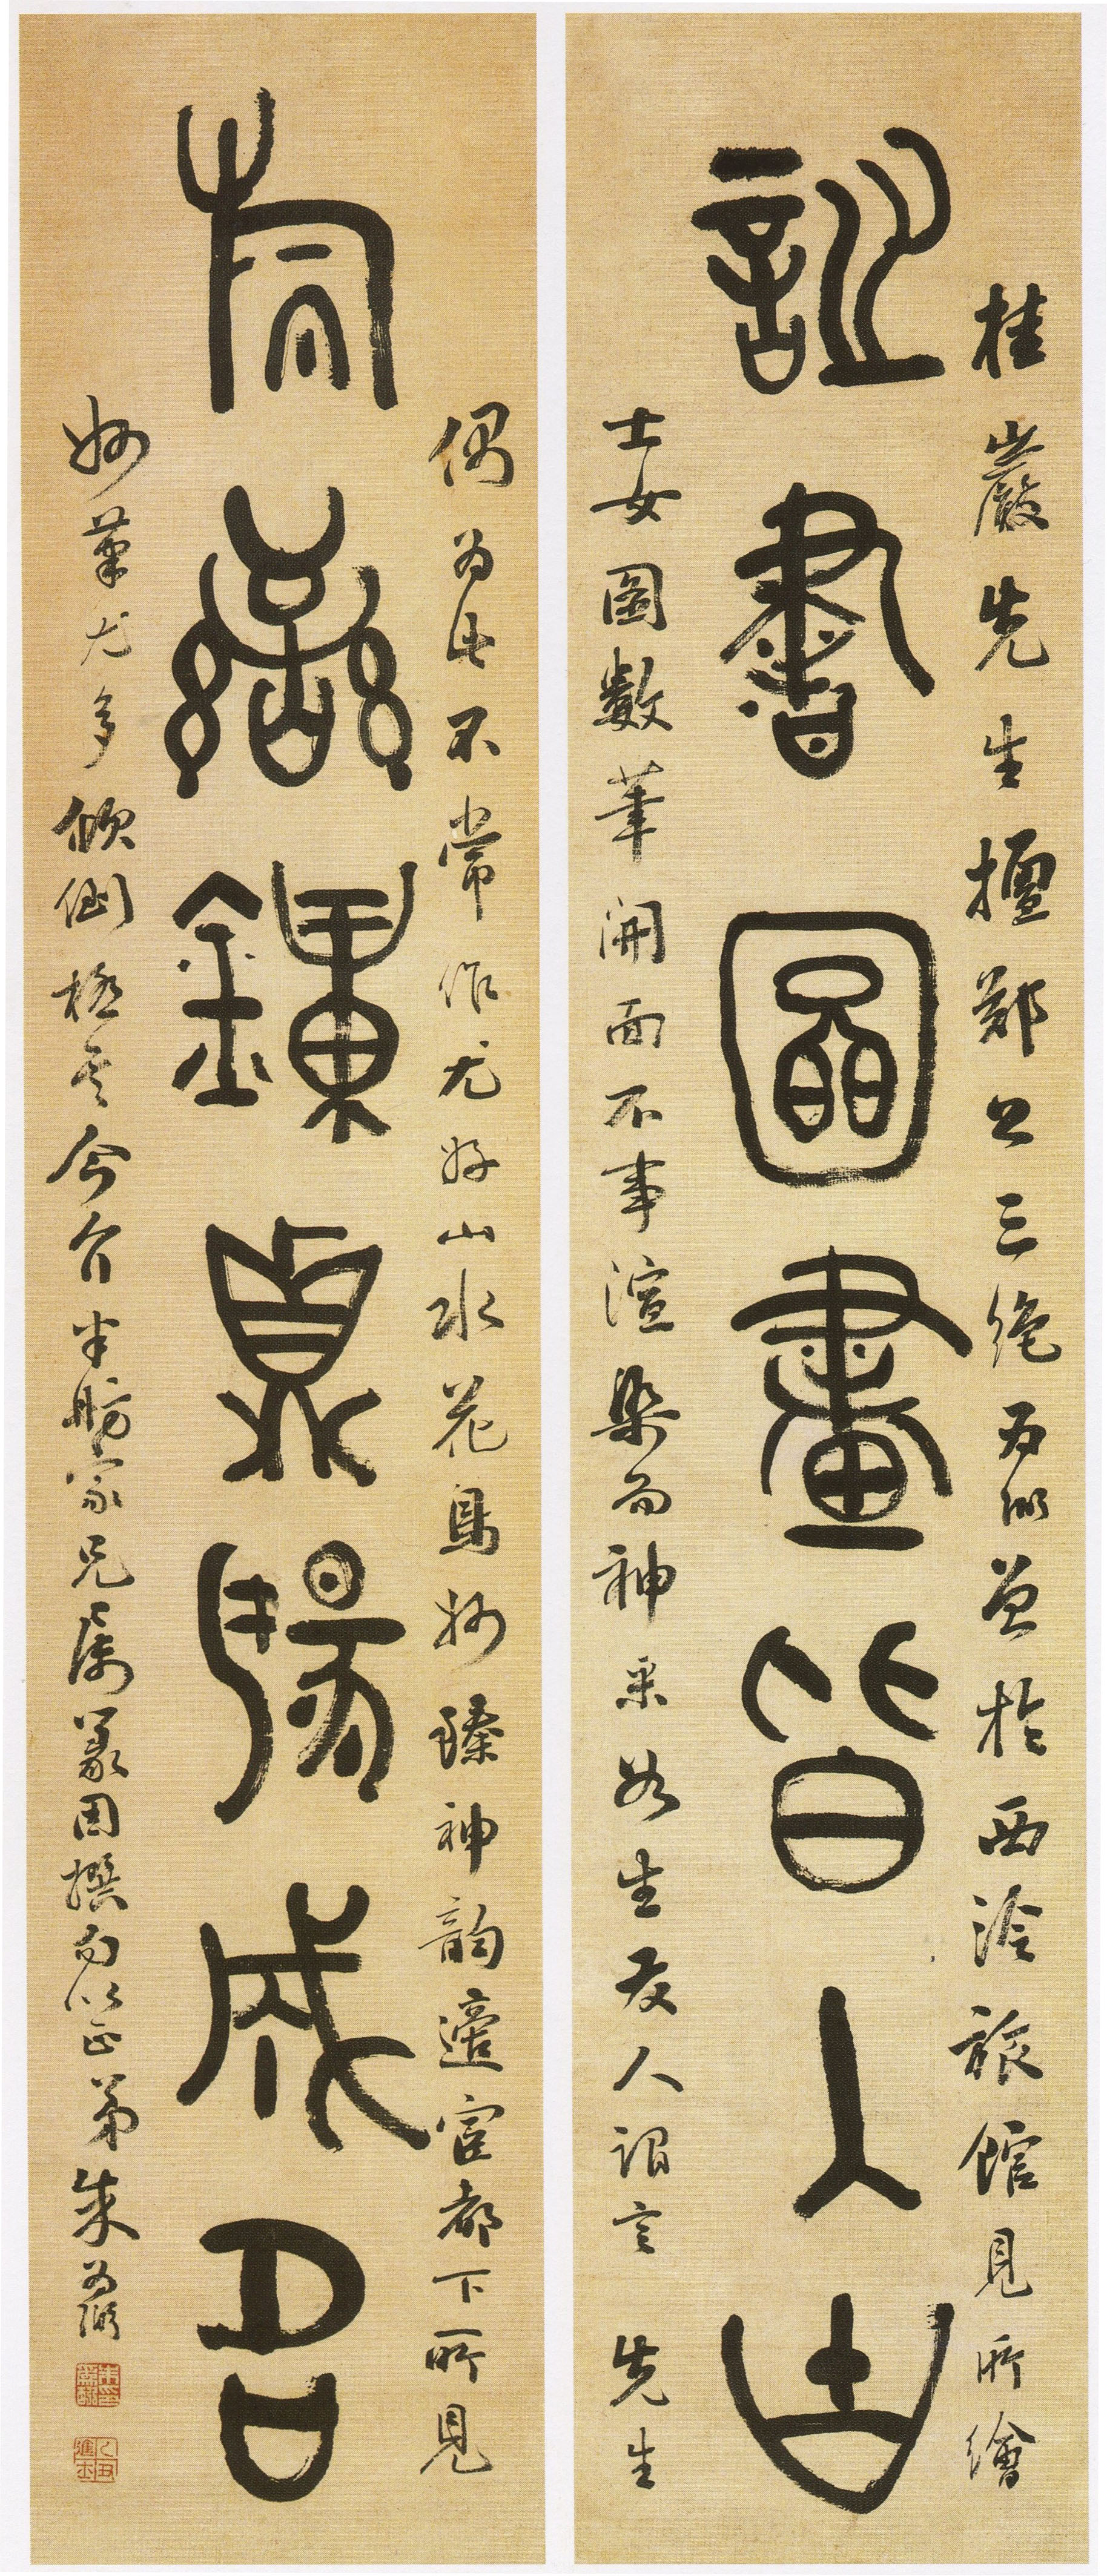 桂巖先生擅鄭公三絶為弼曾於西泠旅館見所繪
書圖畫皆入古
士女圖數筆開面不事渲染而神采如生友人謂言先生
偶為此不常作尤好山水花鳥妙臻神韻適宦都下所見
鐘鼎成
妙筆尤多傾倒極矣今介半舫家兄屬篆因撰句以正弟朱為弼